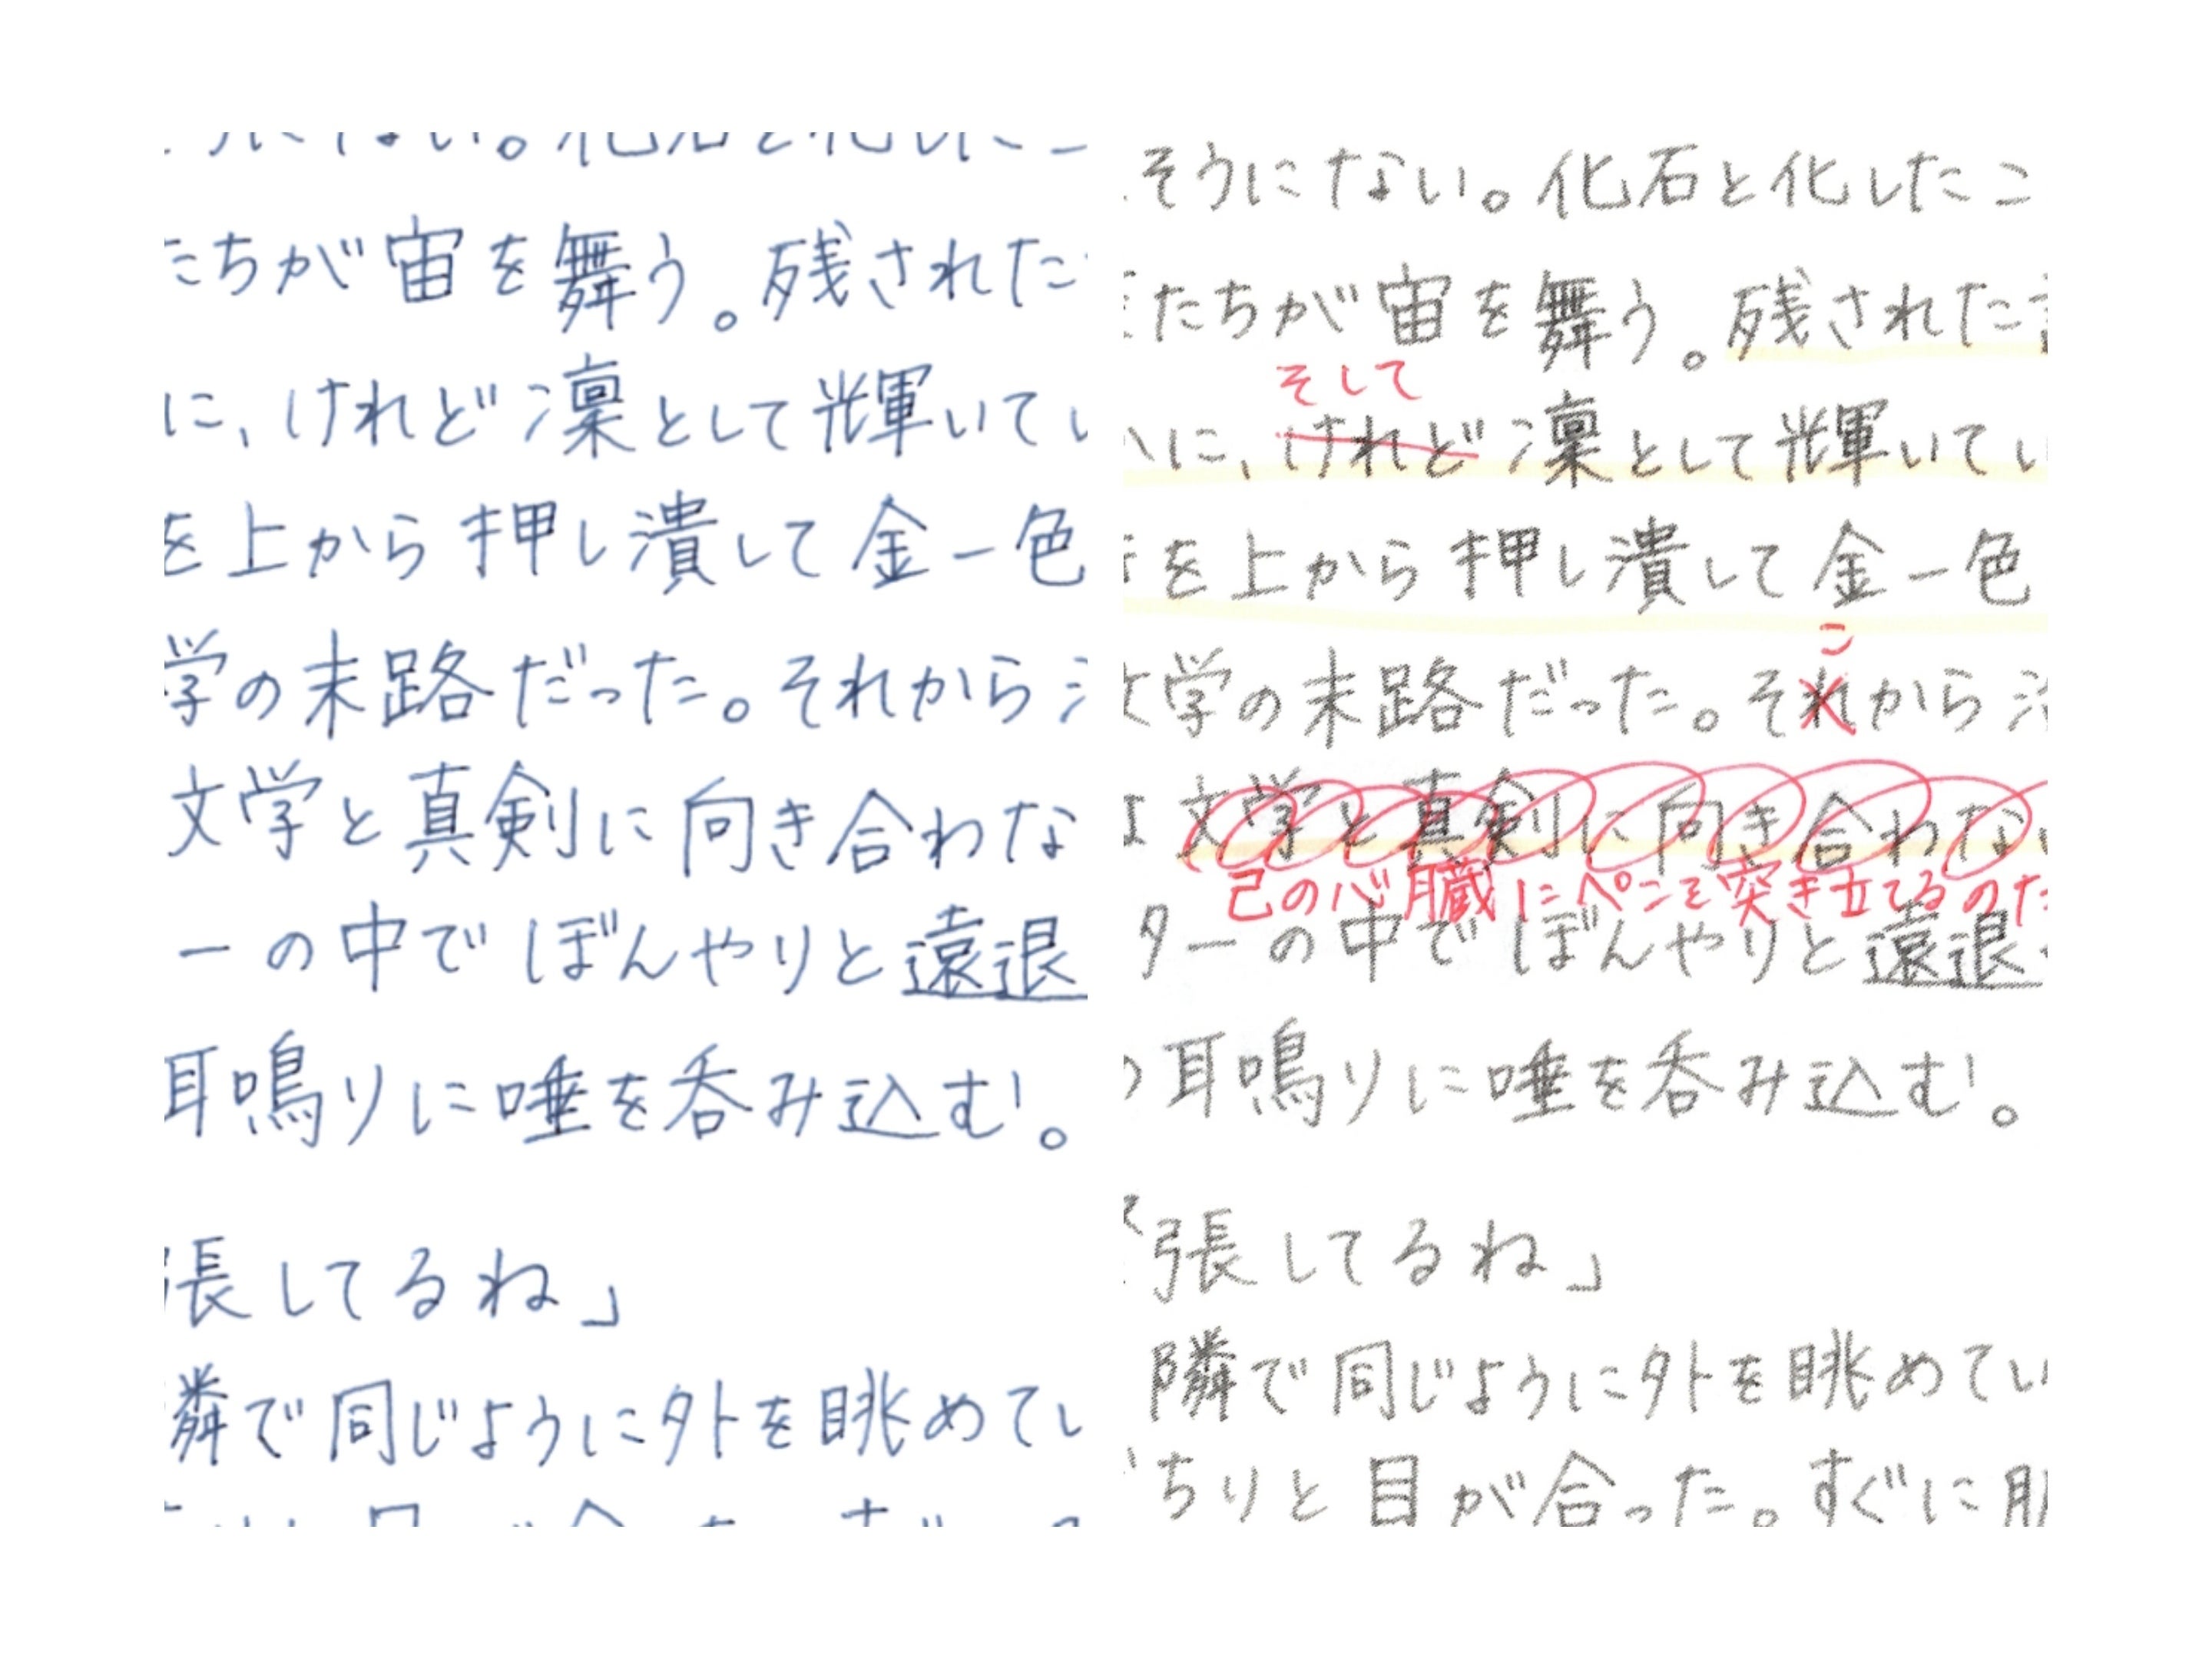 たちが宙を舞う。残された
に、けれど凜として輝いてい
を上から押し潰して金一色
学の末路だった。それから
文学と真剣に向き合わな
ーの中でぼんやりと遠退
耳鳴りに唾を呑み込む。
張してるね」
隣で同じように外を眺めてい
そうにない。化石と化したこ
たちが宙を舞う。残された
そして
に、けれど凜として輝いてい
を上から押し潰して金一色
こ
文学の末路だった。それから
文学と真剣に向き合わない
己の心臓にペンを突き立てるのだ
ターの中でぼんやりと遠退
耳鳴りに唾を呑み込む。
張してるね」
隣で同じように外を眺めてい
ちりと目が合った。すぐに